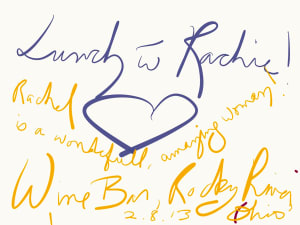 Lunch w Rachie!
Rachel
is a wonderfull, amazing woman!
Wine Bar, Rocky River,
2.8.13 Ohio